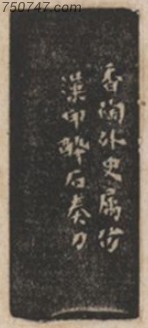 750747.com
香陶外史屬仿
漢印醉石奏刀